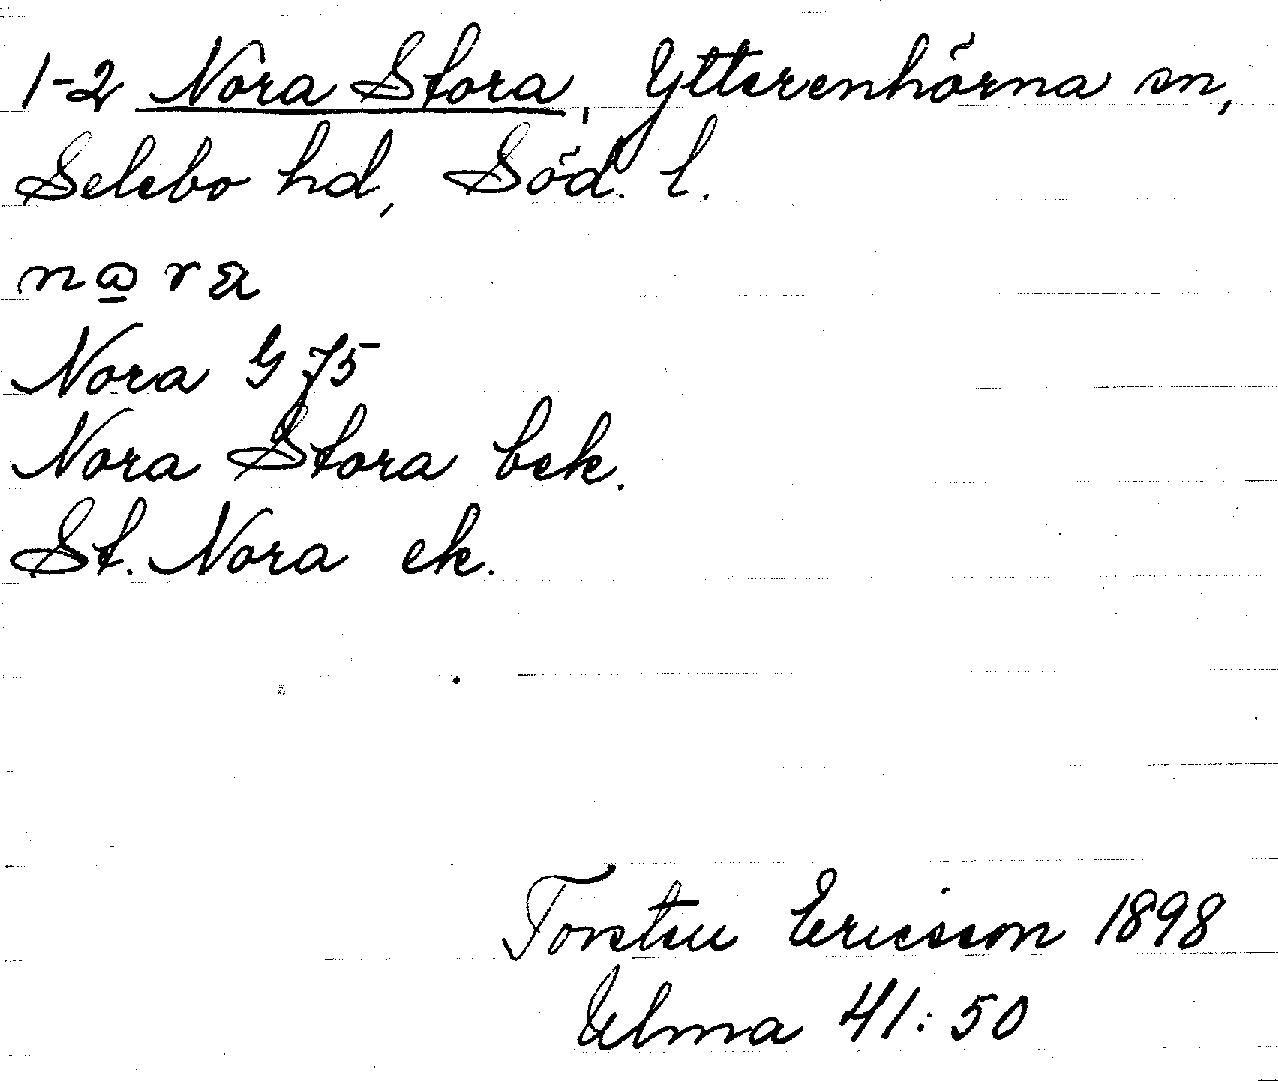 1-2 Nora Stora, Ytterenhörna sn,
Selebo hd, Söd. l.
Nora G 75
Nora Stora bek.
St. Nora ek.
Torsten Ericsson 1898
Ulma 41:50